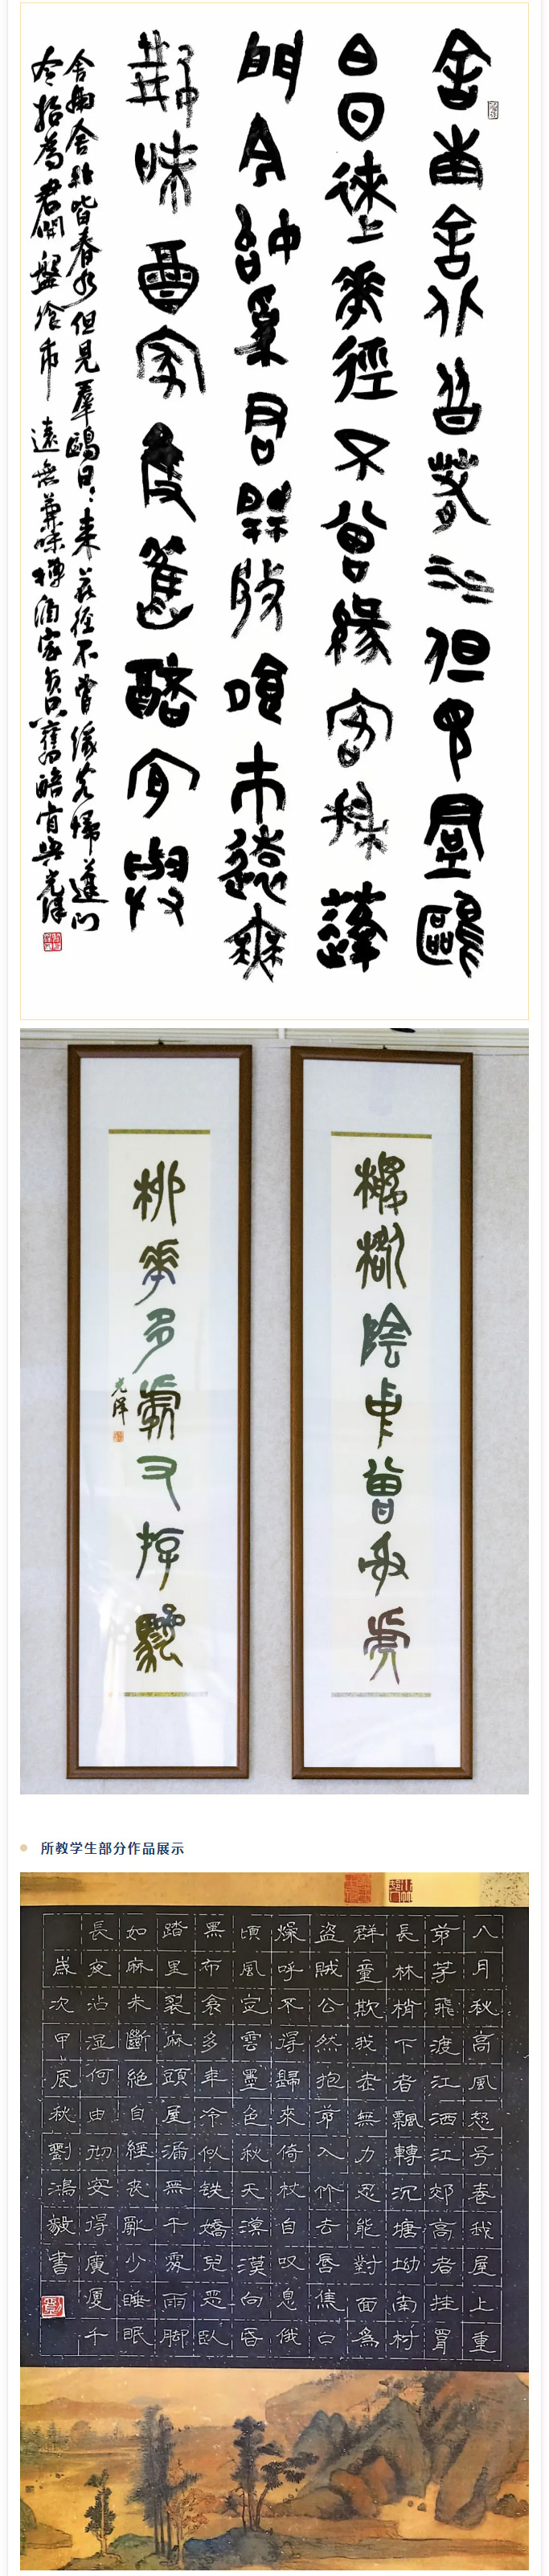 舍南舍北皆春水但見群鷗
日日來花徑不曾緣客掃蓬
門今始為君開盤飧市遠無
兼味酒家貧舊醅肯與
舍南舍北皆春水但見羣鷗日日來花徑不嘗緣客掃蓬門
今始為君開盤飧市遠無兼味樽酒家貧只舊醅肯與光洋
楊柳陰中曾
桃花多處又
光洋
所教学生部分作品展示
八月秋高風怒号卷我屋上重
茅茅飛渡江洒江郊高者挂罥
長林梢下者飄轉沉塘坳南村
群童欺我老無力忍能對面為
盜賊公然抱茅入竹去唇焦口
燥呼不得歸來倚杖自叹息俄
頃風定雲墨色秋天漠漠向昏
黑布衾多年冷似铁嬌兒惡臥
踏里裂床頭屋漏無干處雨脚
如麻未斷絕自經喪亂少睡眠
長夜沾湿何由彻安得廣厦千
歲次甲辰秋劉鴻毅書